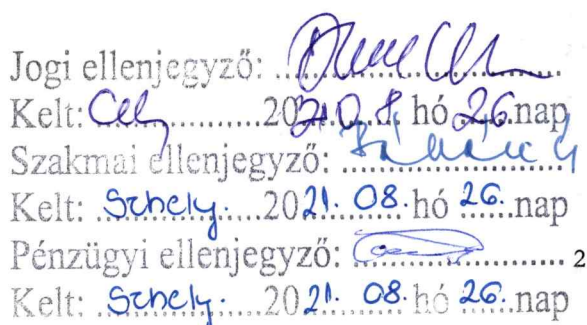 Jogi ellenjegyző: ....................
Kelt: ............2021.08. hó 26.nap
Szakmai ellenjegyző: ....................
Kelt: Szhely. ........2021. 08. hó 26. nap
Pénzügyi ellenjegyző: .................... 2
Kelt: Szhely. ........2021. 08. hó 26. nap